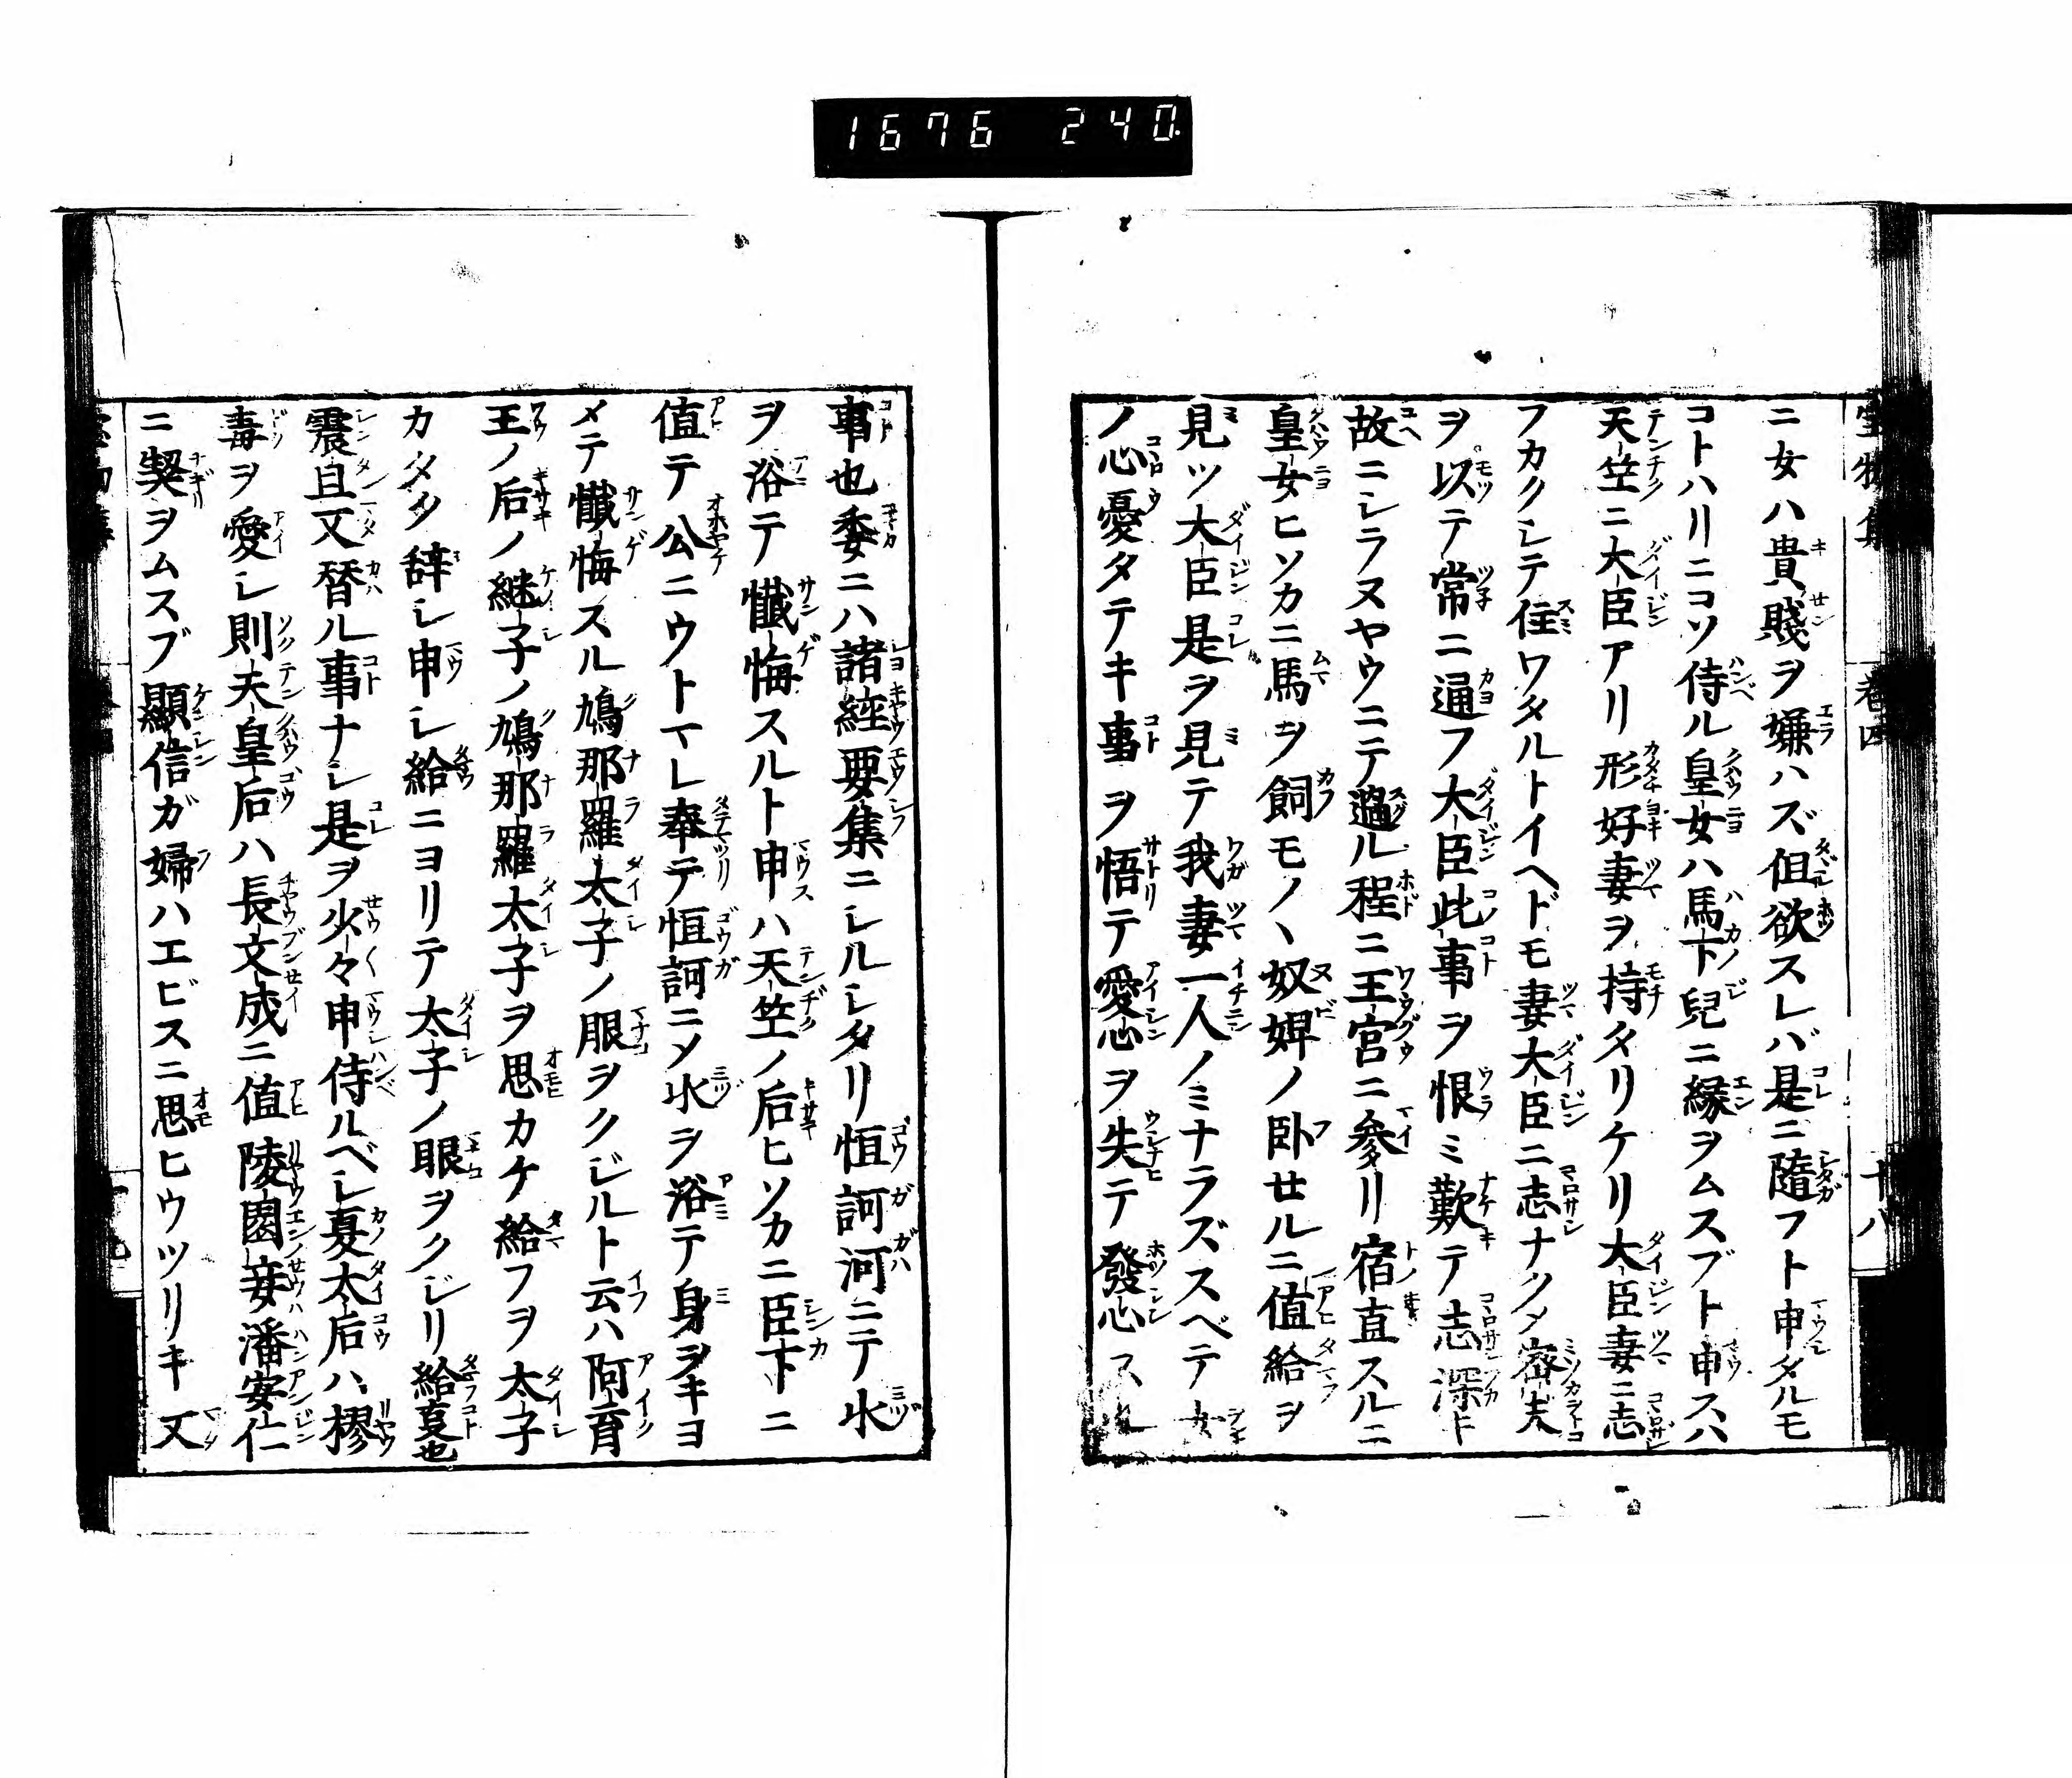 1676 240.
ニ女ハ貴賤ヲ嫌ハズ但欲スレバ是ニ隨フト申タルモ
コトハリニコソ侍ル皇女ハ馬下兒ニ縁ヲムスブト申スハ
天竺ニ大臣アリ形好妻ヲ持タリケリ大臣妻ニ志
フカクシテ住ワタルトイヘドモ妻大臣ニ志ナクメ密夫
ヲ以テ常ニ通フ大臣此事ヲ恨ミ歎テ志深ヒ
故ニシラヌヤウニテ過ル程ニ王宮ニ參リ宿直スルニ
皇女ヒソカニ馬ヲ飼モノヽ奴婢ノ卧セルニ値給ヲ
見ツ大臣是ヲ見テ我妻一人ノミナラズスベテ女
ノ心憂タテキ事ヲ悟テ愛心ヲ失テ發心
卷四
十八
事也委ニハ諸経要集ニシルシタリ恒訶河ニテ水
ヲ浴テ懺悔スルト申ハ天竺ノ后ヒソカニ臣下ニ
値テ公ニウトマレ奉テ恒訶ニメ水ヲ浴テ身ヲキヨ
メテ懺悔スル鳩那羅太子ノ眼ヲクジルト云ハ阿育
王ノ后ノ継子ノ鳩那羅太子ヲ思カケ給フヲ太子
カタク辞シ申シ給ニヨリテ太子ノ眼ヲクジリ給夏也
震旦又替ル事ナシ是ヲ少々申侍ルベシ夏太后ハ樛
毒ヲ愛シ則天皇后ハ長文成ニ値陵園妾潘安仁
ニ契ヲムスブ顯信ガ婦ハエビスニ思ヒウツリキ又